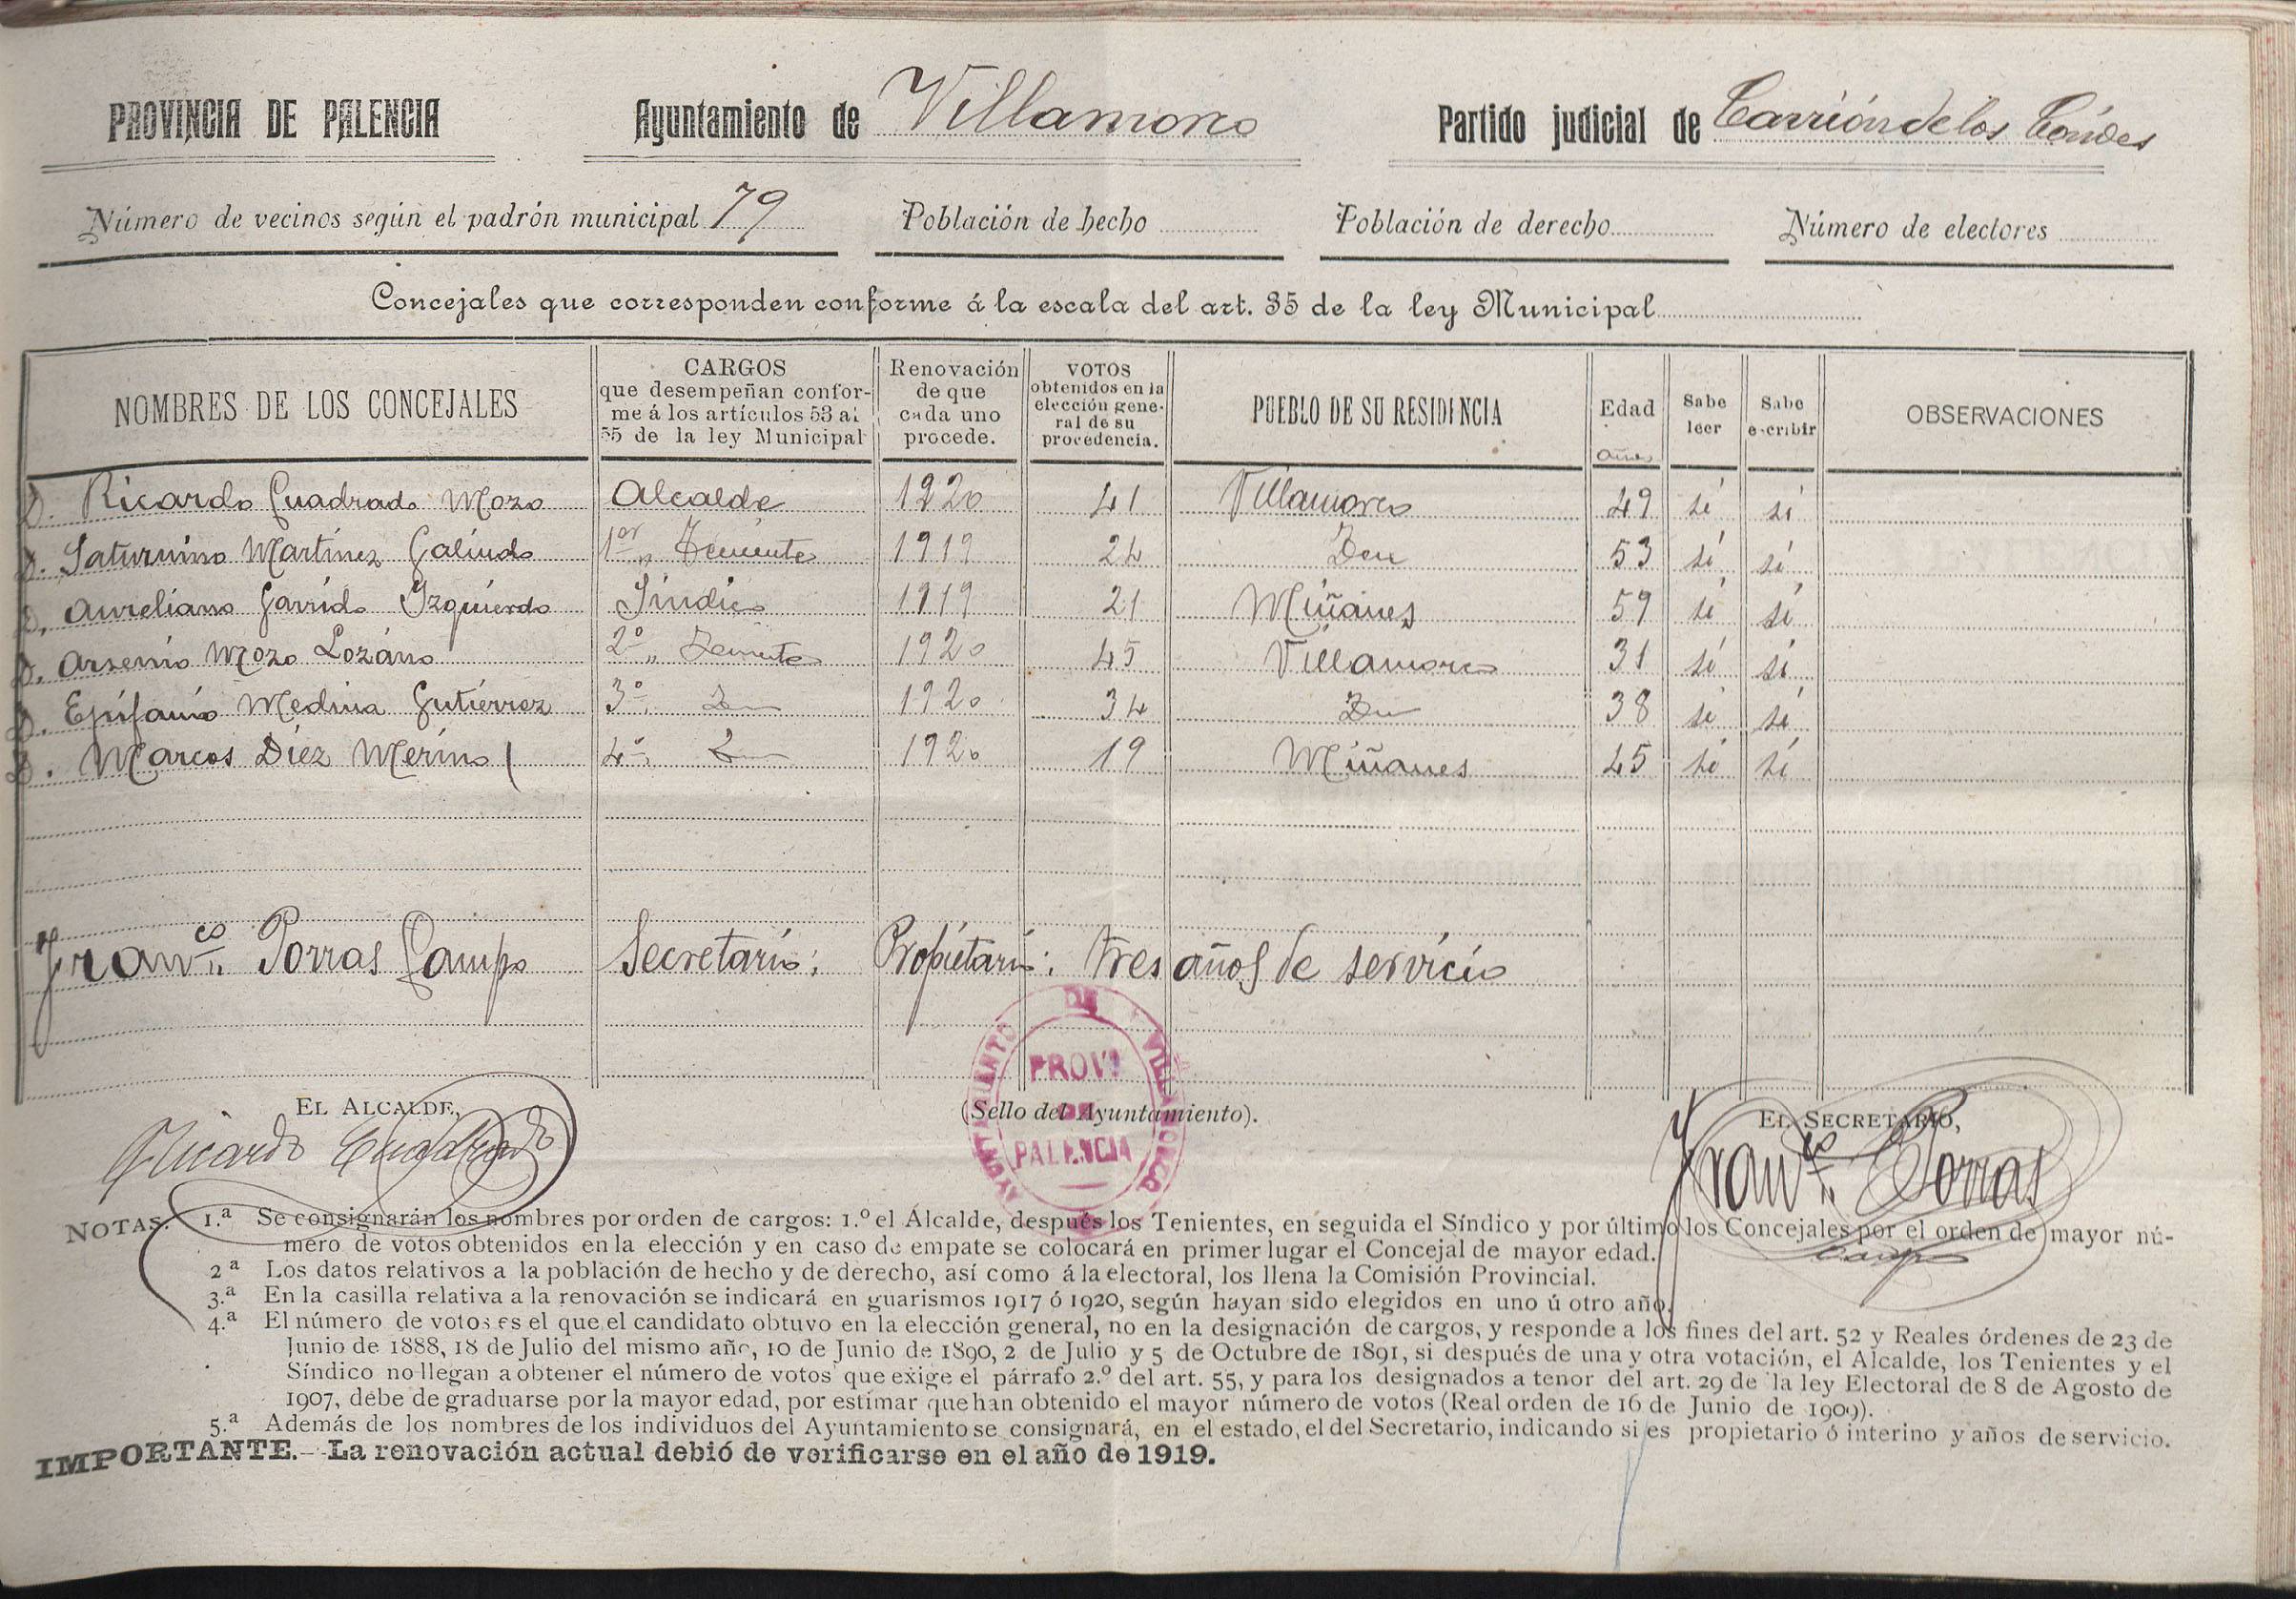 PROVINCIA DE PALENCIA Ayuntamiento de Villamorco Partido judicial de Carrión de los Condes
Número de vecinos según el padrón municipal 79 Población de hecho Población de derecho Número de electores
Concejales que corresponden conforme á la escala del art. 35 de la ley Municipal
NOMBRES DE LOS CONCEJALES CARGOS que desempeñan conforme á los artículos 53 al 55 de la ley Municipal Renovación de que cada uno procede. VOTOS obtenidos en la elección general de su procedencia. PUEBLO DE SU RESIDENCIA Edad años Sabe leer Sabe escribir OBSERVACIONES
D. Ricardo Cuadrado Mozo Alcalde 1920 41 Villamorco 49 sí sí
D. Saturnino Martínez Galindo 1er " Teniente 1919 24 Dem 53 sí sí
D. Aureliano Garrido Izquierdo Síndico 1919 21 Miñanes 59 sí sí
D. Arsenio Mozo Lozano 2º " Teniente 1920 45 Villamorco 31 sí sí
D. Epifanio Medina Gutiérrez 3º " Dem 1920 34 Dem 38 sí sí
D. Marcos Díez Merino 4º " Dem 1920 19 Miñanes 45 sí sí
Franco. Porras Campo Secretario: Propietario: tres años de servicio
EL ALCALDE, (Sello del Ayuntamiento). EL SECRETARIO,
Ricardo Cuadrado Franco. Porras
Campo
AYUNTAMIENTO DE VILLAMORCO
PROVI
DE
PALENCIA
NOTAS. 1.ª Se consignarán los nombres por orden de cargos: 1.º el Alcalde, después los Tenientes, en seguida el Síndico y por último los Concejales por el orden de mayor nú-
mero de votos obtenidos en la elección y en caso de empate se colocará en primer lugar el Concejal de mayor edad.
2ª Los datos relativos a la población de hecho y de derecho, así como á la electoral, los llena la Comisión Provincial.
3.ª En la casilla relativa a la renovación se indicará en guarismos 1917 ó 1920, según hayan sido elegidos en uno ú otro año.
4.ª El número de votos es el que el candidato obtuvo en la elección general, no en la designación de cargos, y responde a los fines del art. 52 y Reales órdenes de 23 de
Junio de 1888, 18 de Julio del mismo año, 10 de Junio de 1890, 2 de Julio y 5 de Octubre de 1891, si después de una y otra votación, el Alcalde, los Tenientes y el
Síndico no llegan a obtener el número de votos que exige el párrafo 2.º del art. 55, y para los designados a tenor del art. 29 de la ley Electoral de 8 de Agosto de
1907, debe de graduarse por la mayor edad, por estimar que han obtenido el mayor número de votos (Real orden de 16 de Junio de 1909).
5.ª Además de los nombres de los individuos del Ayuntamiento se consignará, en el estado, el del Secretario, indicando si es propietario ó interino y años de servicio.
IMPORTANTE.—La renovación actual debió de verificarse en el año de 1919.